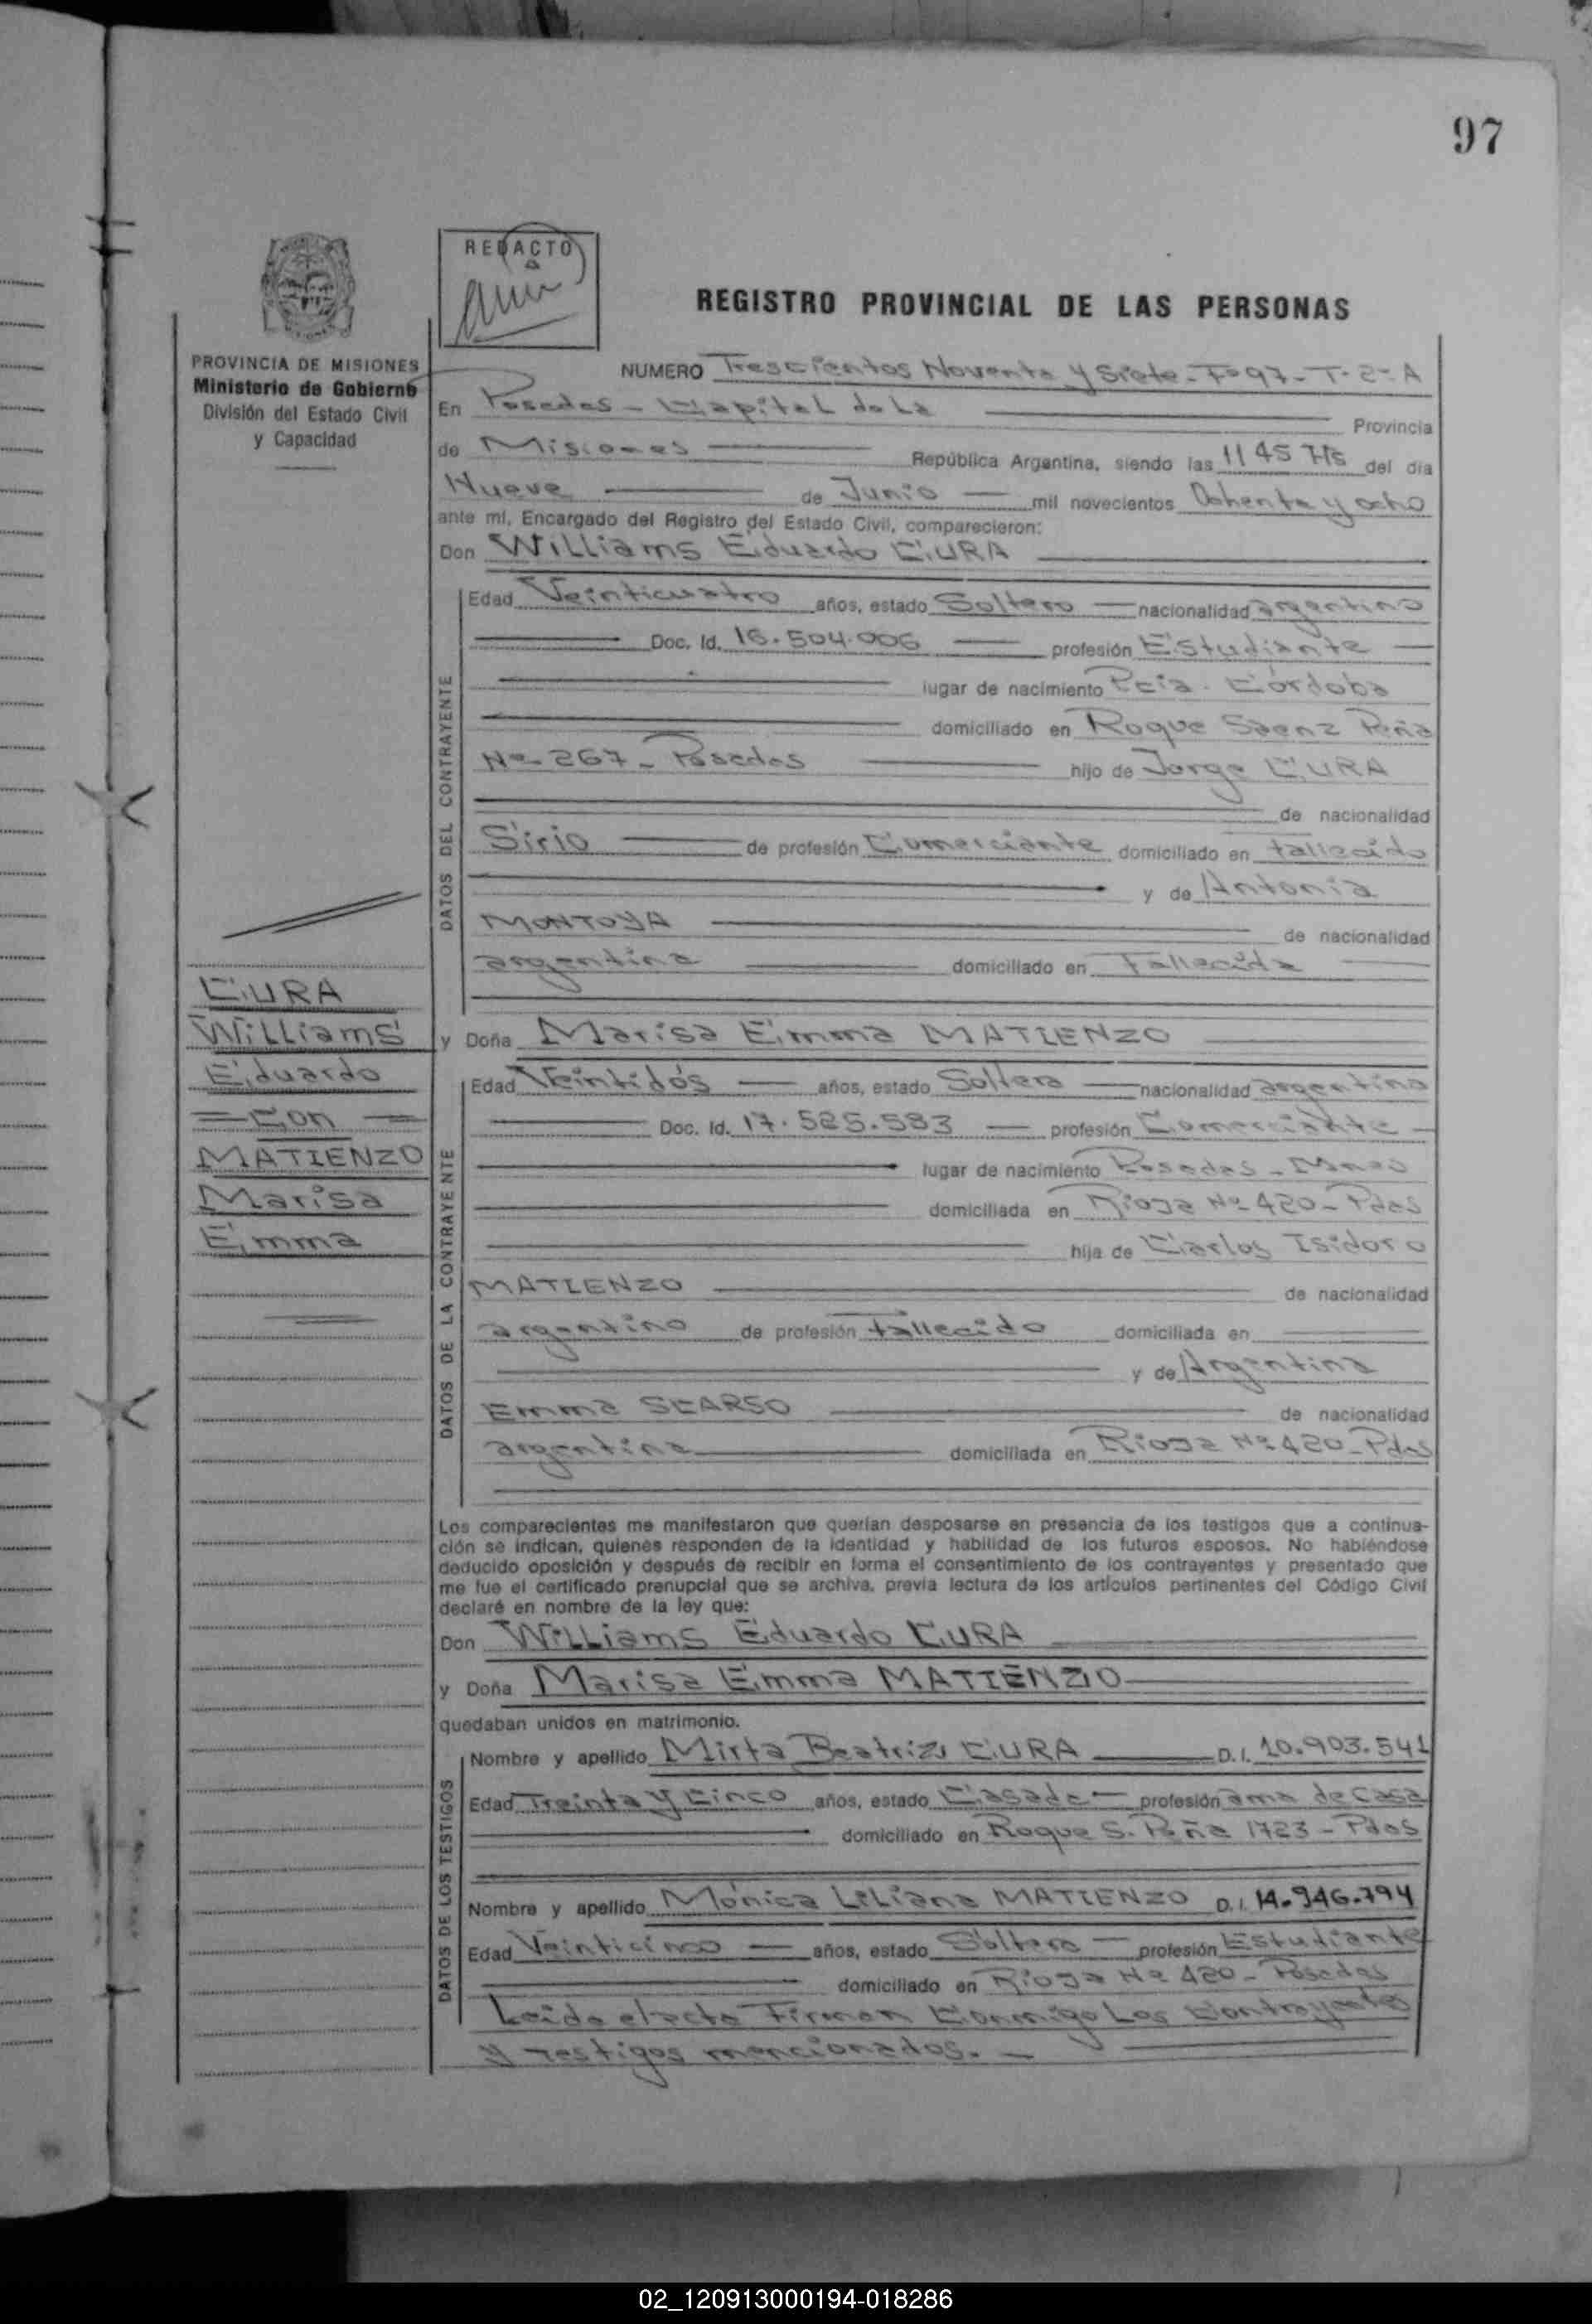 97
REDACTO
REGISTRO PROVINCIAL DE LAS PERSONAS
PROVINCIA DE MISIONES
Ministerio de Gobierno
División del Estado Civil
y Capacidad
NUMERO Trescientos Noventa y Siete - Fº 97 - T. 2º A
En Posadas - Capital de La Provincia
de Misiones República Argentina, siendo las 11 45 Hs del día
Nueve de Junio mil novecientos Ochenta y ocho
ante mí, Encargado del Registro del Estado Civil, comparecieron:
Don Williams Eduardo CURA
DATOS DEL CONTRAYENTE
Edad Veinticuatro años, estado Soltero nacionalidad argentino
Doc. Id. 16.504.006 profesión Estudiante
lugar de nacimiento Pcia. Córdoba
domiciliado en Roque Saenz Peña
Nº 267 - Posadas hijo de Jorge CURA
de nacionalidad
Sirio de profesión Comerciante domiciliado en fallecido
y de Antonia
MONTOYA de nacionalidad
argentina domiciliado en Fallecida
CURA
Williams
Eduardo
= Con =
MATIENZO
Marisa
Emma
y Doña Marisa Emma MATIENZO
DATOS DE LA CONTRAYENTE
Edad Veintidós años, estado Soltera nacionalidad argentina
Doc. Id. 17.525.583 profesión Comerciante
lugar de nacimiento Posadas - Mnes
domiciliada en Rioja Nº 420 - Pdas
hija de Carlos Isidoro
MATIENZO de nacionalidad
argentino de profesión fallecido domiciliada en
y de Argentina
Emma SCARSO de nacionalidad
argentina domiciliada en Rioja Nº 420 - Pdas
Los comparecientes me manifestaron que querían desposarse en presencia de los testigos que a continua-
ción se indican, quienes responden de la identidad y habilidad de los futuros esposos. No habiéndose
deducido oposición y después de recibir en forma el consentimiento de los contrayentes y presentado que
me fue el certificado prenupcial que se archiva, previa lectura de los artículos pertinentes del Código Civil
declaré en nombre de la ley que:
Don Williams Eduardo CURA
y Doña Marisa Emma MATIENZO
quedaban unidos en matrimonio.
DATOS DE LOS TESTIGOS
Nombre y apellido Mirta Beatriz CURA D.I. 10.903.541
Edad Treinta y Cinco años, estado Casada profesión ama de casa
domiciliado en Roque S. Peña 1723 - Pdas
Nombre y apellido Mónica Liliana MATIENZO D.I. 14.946.794
Edad Veinticinco años, estado Soltera profesión Estudiante
domiciliado en Rioja Nº 420 - Posadas
Leida el acta Firman Conmigo Los Contrayentes
y testigos mencionados. -
02_120913000194-018286